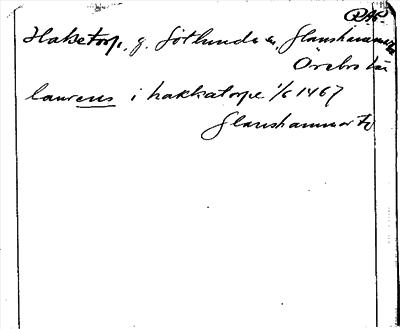 Haketorp, g. Götlunda sn, Glanshammar hd
Örebro län
laurens i hakkatorpe 1/6 1467
Glanshammar tb